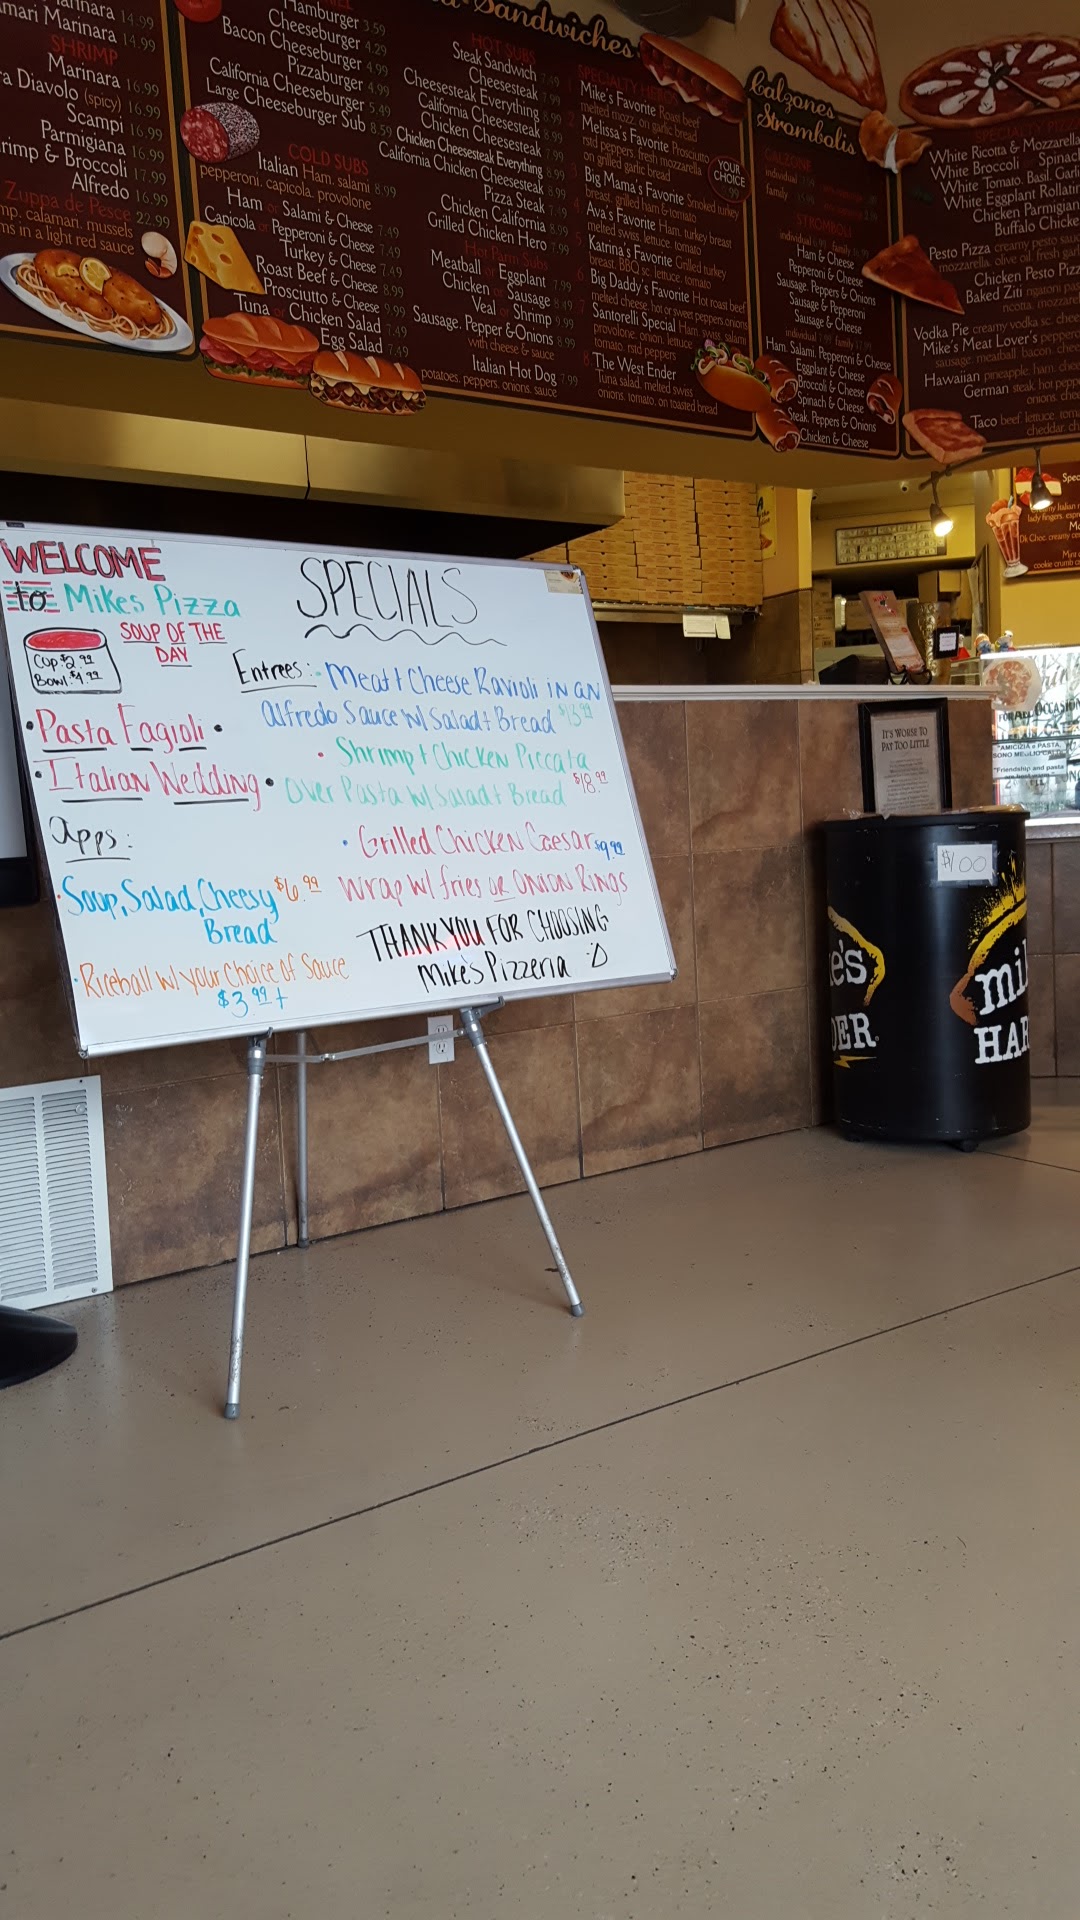 Marinara 14.99
SHRIMP
Marinara 16.99
Diavolo (spicy) 16.99
Scampi 16.99
Parmigiana 16.99
& Broccoli 17.99
Alfredo 16.99
Zuppa de Pesce 22.99
calamari, mussels
in a light red sauce
Hamburger 3.59
Cheeseburger 4.29
Bacon Cheeseburger 4.99
Pizzaburger 4.99
California Cheeseburger 5.49
Large Cheeseburger Sub 8.59
COLD SUBS
Italian Ham, salami 8.99
pepperoni, capicola, provolone
Ham or Salami & Cheese 7.49
Capicola or Pepperoni & Cheese 7.49
Turkey & Cheese 7.49
Roast Beef & Cheese 8.99
Prosciutto & Cheese 9.99
Tuna or Chicken Salad 7.49
Egg Salad 7.49
Sandwiches
HOT SUBS
Steak Sandwich 7.49
Cheesesteak 7.99
Cheesesteak Everything 8.99
California Cheesesteak 8.99
Chicken Cheesesteak 7.99
Chicken Cheesesteak Everything 8.99
California Chicken Cheesesteak 8.99
Pizza Steak 7.49
Chicken California 8.99
Grilled Chicken Hero 7.99
Hot Parm Subs
Meatball or Eggplant 7.99
Chicken or Sausage 8.49
Veal or Shrimp 9.99
Sausage, Pepper & Onions 8.99
with cheese & sauce
Italian Hot Dog 7.99
potatoes, peppers, onions, sauce
Mike's Favorite Roast beef
melted mozz. on garlic bread
Melissa's Favorite Prosciutto
rstd peppers, fresh mozzarella
on garlic bread
Big Mama's Favorite Smoked turkey
breast, grilled ham & tomato
Ava's Favorite Ham, turkey breast
melted swiss, lettuce, tomato
Katrina's Favorite Grilled turkey
breast, BBQ sc. lettuce, tomato
Big Daddy's Favorite Hot roast beef
melted cheese, hot or sweet peppers, onions
Santorelli Special Ham, swiss, salami
provolone, onion, lettuce
tomato, rstd peppers
The West Ender
Tuna salad, melted swiss
onions, tomato, on toasted bread
YOUR
CHOICE
Calzones
Strombolis
CALZONE
individual
family
STROMBOLI
Ham & Cheese
Pepperoni & Cheese
Sausage, Peppers & Onions
Sausage & Pepperoni
Sausage & Cheese
Ham, Salami, Pepperoni & Cheese
Eggplant & Cheese
Broccoli & Cheese
Spinach & Cheese
Steak, Peppers & Onions
Chicken & Cheese
White Ricotta & Mozzarella
White Broccoli or Spinach
White Tomato, Basil, Garlic
White Eggplant Rollatini
Chicken Parmigiana
Buffalo Chicken
Pesto Pizza creamy pesto
mozzarella, olive oil, fresh
Chicken Pesto Pizza
Baked Ziti
Vodka Pie creamy vodka sc.
Mike's Meat Lover's
sausage, meatball, bacon
Hawaiian pineapple, ham
German steak, hot
onions
Taco beef, lettuce
cheddar
WELCOME
to Mikes Pizza
SOUP OF THE
DAY
Cup: $2.99
Bowl: $4.99
• Pasta Fagioli •
• Italian Wedding •
Apps:
• Soup, Salad, Cheesy $6.99
Bread
• Riceball w/ your choice of Sauce
$3.99 +
SPECIALS
Entrees: - Meat + Cheese Ravioli in an
Alfredo Sauce w/ Salad + Bread $13.99
• Shrimp + Chicken Piccata
over Pasta w/ Salad + Bread $18.99
• Grilled Chicken Caesar $9.99
Wrap w/ fries or Onion Rings
THANK YOU FOR CHOOSING
Mike's Pizzeria :D
IT'S WORSE TO
PAY TOO LITTLE
"AMICIZIA e PASTA,
"Friendship and pasta
$1.00
e's
DER
mi
HAR